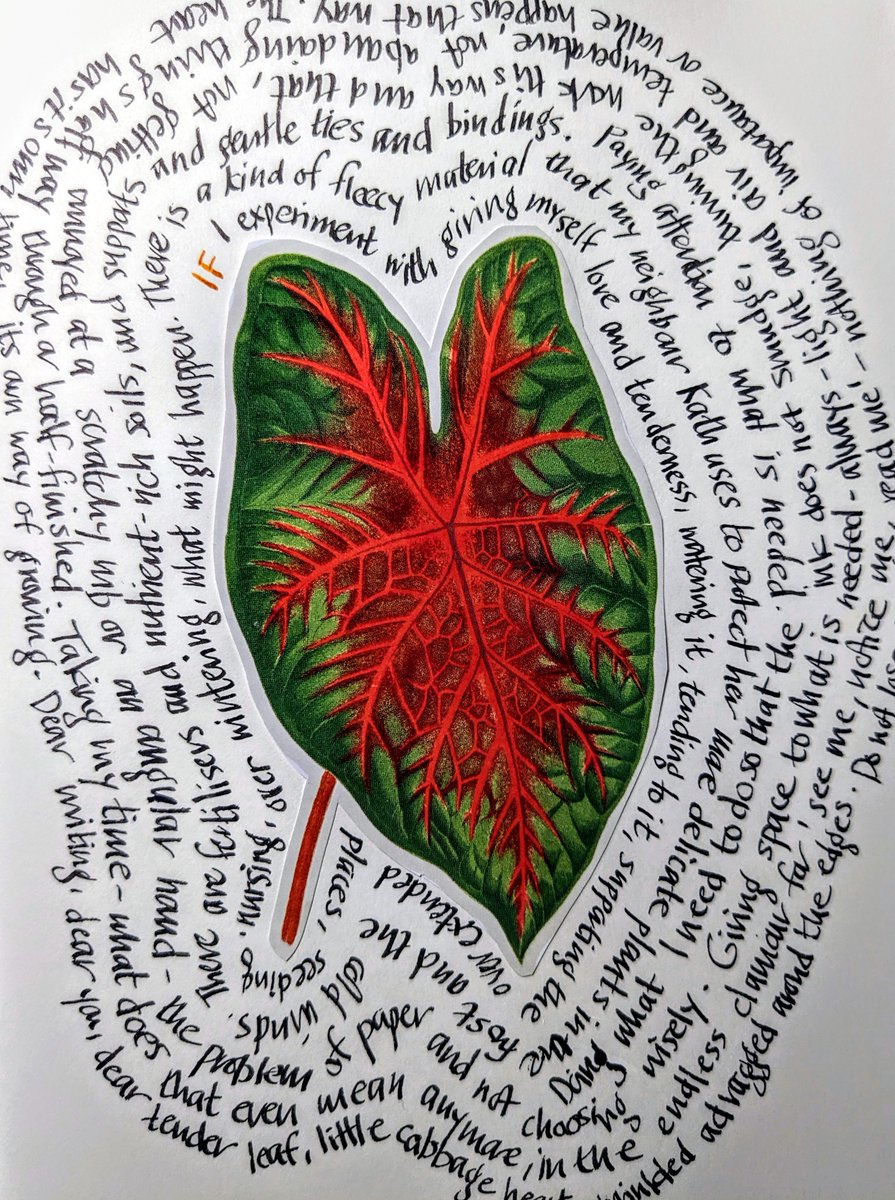 IF I experiment with giving myself love and tenderness, watering it, tending to it, supporting the
over extended places, seeding,
over wintering, what might happen. There is a kind of fleecy material that my neighbour Kath uses to protect her more delicate plants in the
frost and the cold winds.
There are fertilisers and nutrient-rich soils, and
and gentle ties and bindings. Paying attention to what is needed. Doing what I need to do so that the
ink does not smudge, turning the
this way and that, not getting
a scratchy nib or an angular hand - the problem
choosing wisely. Giving space to what is needed - always - light and air and temperature, not abandoning things half way through a half-finished. Taking my time - what does that even mean anymore, in the endless clamour for 'see me, notice me, read me' - nothing of importance or value happens that way. The heart has it's own time, its own way of growing. Dear writing, dear you, dear tender leaf, little cabbage heart
around the edges. Do not